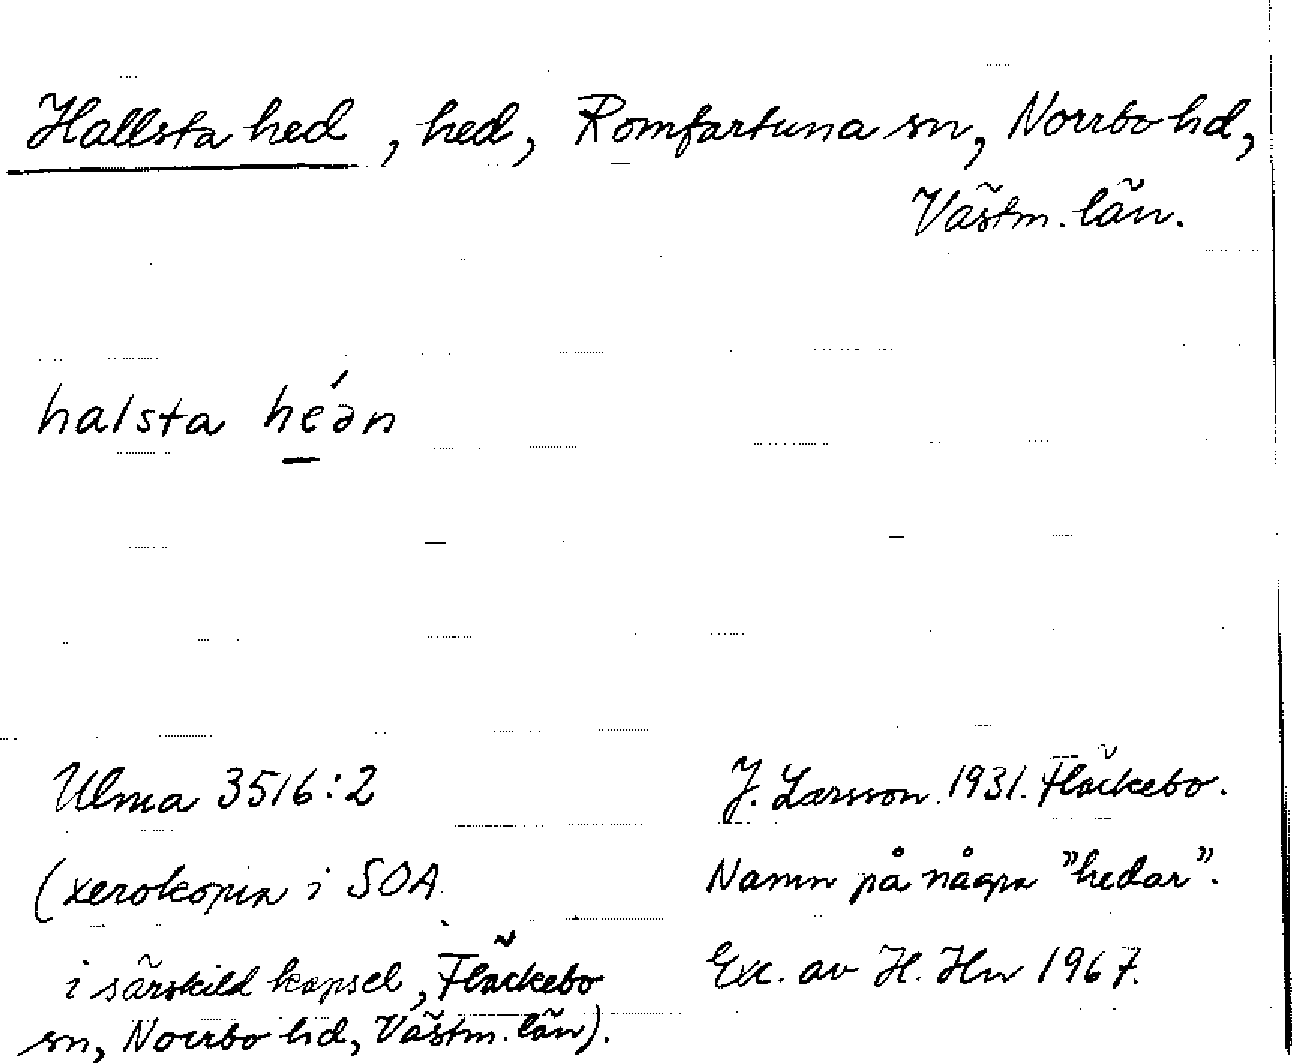 Hallsta hed, hed, Romfartuna sn, Norrbo hd,
Västm. län.
halsta héən
Ulma 3516:2
(xerokopia i SOA
i särskild kapsel, Fläckebo
sn, Norrbo hd, Västm. län).
J. Larsson. 1931. Fläckebo.
Namn på några "hedar".
Exc. av H. Hn 1967.